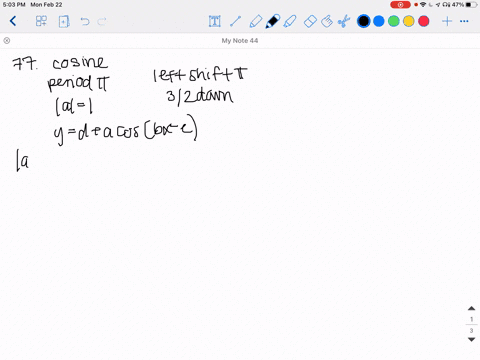 5:03 PM Mon Feb 22
47%
My Note 44
77. cosine
period π
|a|=1
left shift π
3/2 down
y=d+a cos(bx-c)
|a
1
3